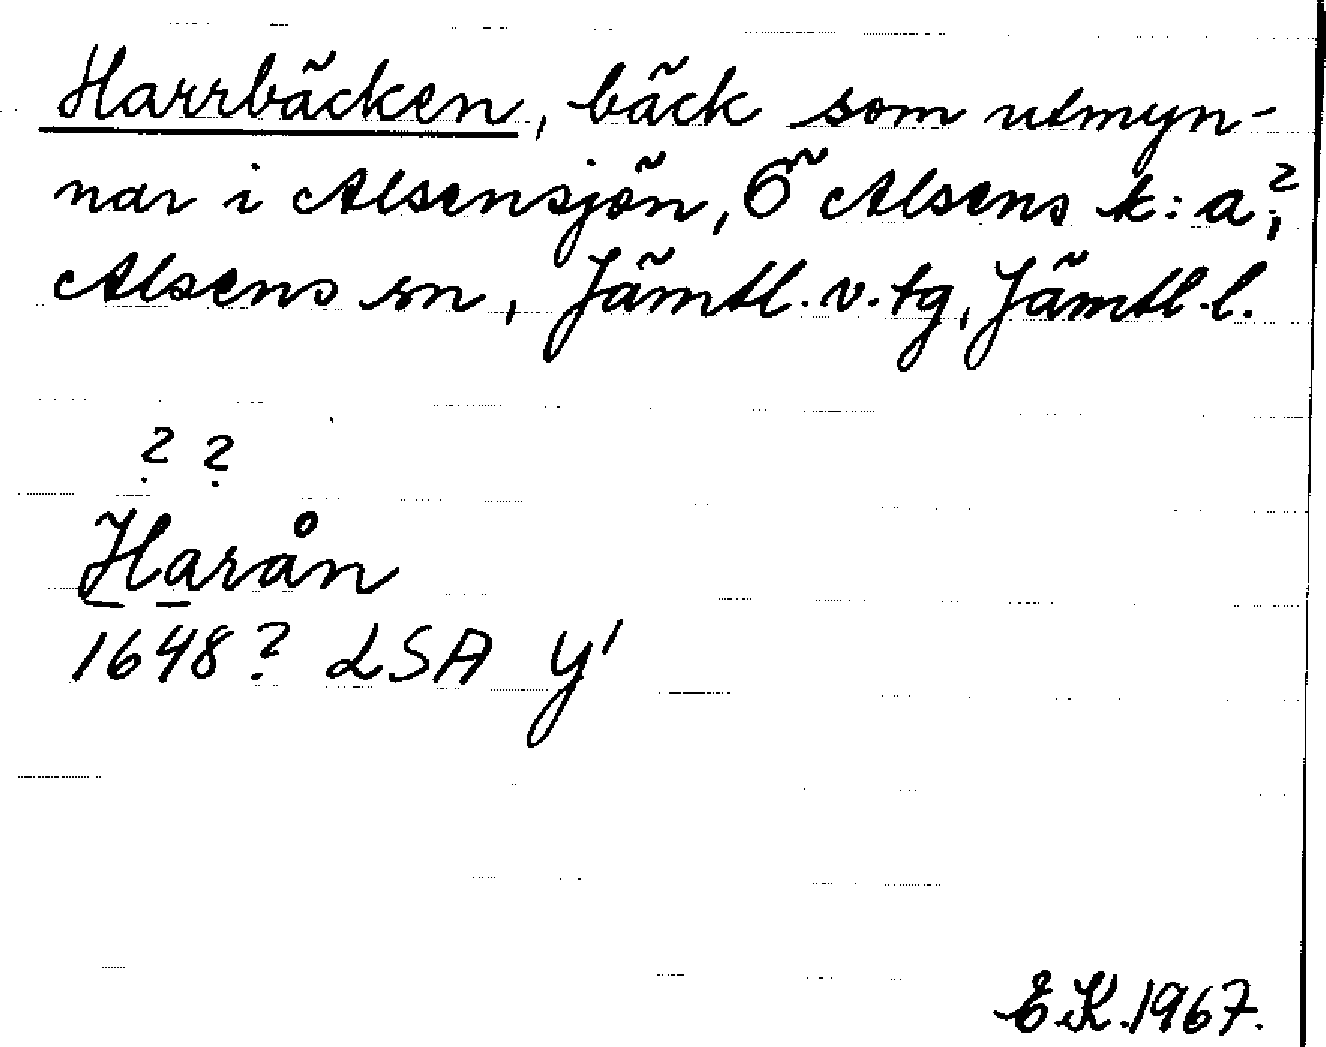 Harrbäcken, bäck som utmyn-
nar i Alsensjön, Ö Alsens k:a?,
Alsens sn, Jämtl. v. tg, Jämtl. l.
? ?
Harån
1648? LSA Y'
E.K. 1967.